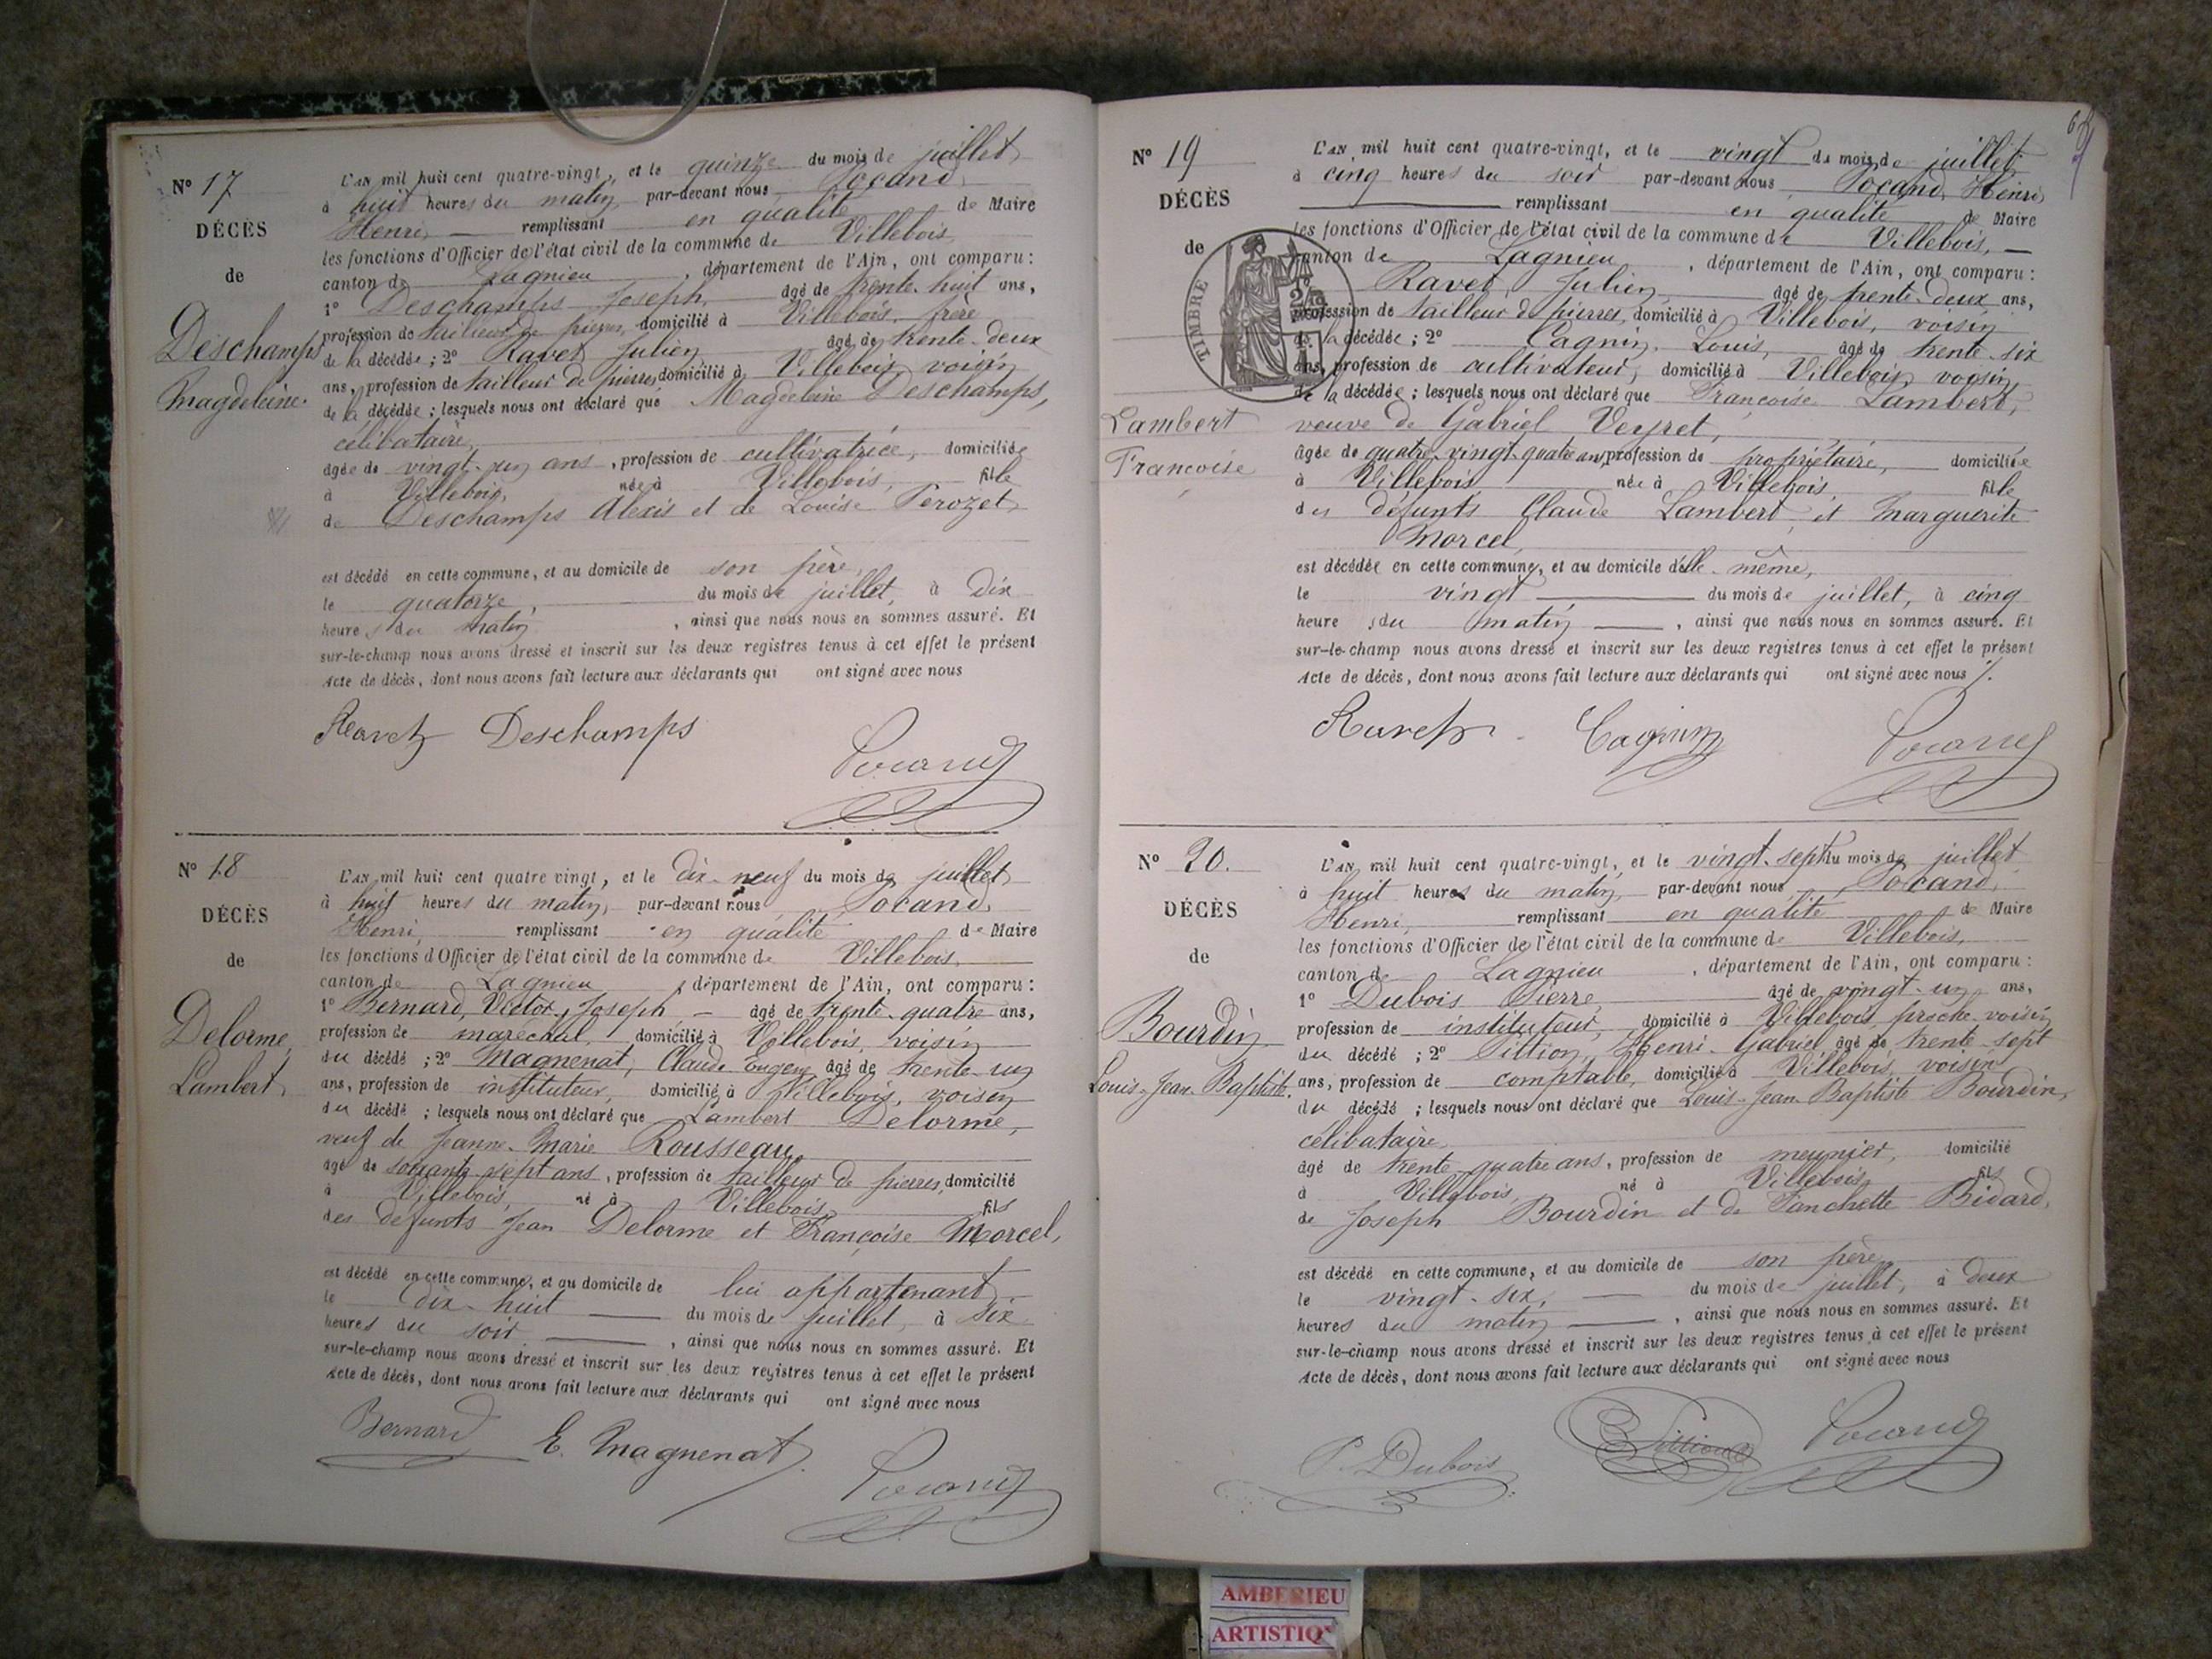 N° 17
DÉCÈS
de
Deschamps
Magdeleine.
L'AN mil huit cent quatre-vingt, et le quinze du mois de juillet
à huit heures du matin, par-devant nous, Pocand,
Henri, remplissant en qualité de Maire
les fonctions d'Officier de l'état civil de la commune de Villebois
canton de Lagnieu, département de l'Ain, ont comparu :
1° Deschamps Joseph, âgé de trente-huit ans,
profession de tailleur de pierres, domicilié à Villebois, frère
de la décédée ; 2° Ravet Julien, âgé de trente-deux
ans, profession de tailleur de pierres, domicilié à Villebois, voisin
de la décédée ; lesquels nous ont déclaré que Magdeleine Deschamps,
célibataire,
âgée de vingt-un ans, profession de cultivatrice, domiciliée
à Villebois, née à Villebois, fille
de Deschamps Alexis et de Louise Perozet,
est décédé en cette commune, et au domicile de son père,
le quatorze, du mois de juillet, à dix
heures du matin, ainsi que nous nous en sommes assuré. Et
sur-le-champ nous avons dressé et inscrit sur les deux registres tenus à cet effet le présent
Acte de décès, dont nous avons fait lecture aux déclarants qui ont signé avec nous
Ravet Deschamps
Pocand
N° 18
DÉCÈS
de
Delorme,
Lambert,
L'AN mil huit cent quatre vingt, et le dix-neuf du mois de juillet
à huit heures du matin, par-devant nous, Pocand,
Henri, remplissant en qualité de Maire
les fonctions d'Officier de l'état civil de la commune de Villebois,
canton de Lagnieu, département de l'Ain, ont comparu :
1° Bernard, Victor, Joseph, — âgé de trente-quatre ans,
profession de maréchal, domicilié à Villebois, voisin
du décédé ; 2° Magnenat, Claude Eugène, âgé de trente-un
ans, profession de instituteur, domicilié à Villebois, voisin
du décédé ; lesquels nous ont déclaré que Lambert Delorme,
veuf de Jeanne-Marie Rousseau,
âgé de soixante-sept ans, profession de tailleur de pierres, domicilié
à Villebois, né à Villebois, fils
des défunts Jean Delorme et Françoise Morcel,
est décédé en cette commune, et au domicile de lui appartenant
le dix-huit du mois de juillet, à six
heures du soir, ainsi que nous nous en sommes assuré. Et
sur-le-champ nous avons dressé et inscrit sur les deux registres tenus à cet effet le présent
Acte de décès, dont nous avons fait lecture aux déclarants qui ont signé avec nous
Bernard E. Magnenat
Pocand
N° 19
DÉCÈS
de
TIMBRE
Lambert
Françoise
L'AN mil huit cent quatre-vingt, et le vingt du mois de juillet
à cinq heures du soir par-devant nous Pocand, Henri,
remplissant en qualité de Maire
les fonctions d'Officier de l'état civil de la commune de Villebois, —
canton de Lagnieu, département de l'Ain, ont comparu :
Ravet, Julien, âgé de trente-deux ans,
profession de tailleur de pierres, domicilié à Villebois, voisin
de la décédée ; 2° Cagnin, Louis, âgé de trente-six
ans, profession de cultivateur, domicilié à Villebois, voisin
de la décédée ; lesquels nous ont déclaré que Françoise Lambert,
veuve de Gabriel Veyret,
âgée de quatre-vingt-quatre ans, profession de propriétaire, domiciliée
à Villebois née à Villebois, fille
des défunts Claude Lambert, et Marguerite
Morcel,
est décédée en cette commune, et au domicile d'elle-même,
le vingt du mois de juillet, à cinq
heures du matin, ainsi que nous nous en sommes assuré. Et
sur-le-champ nous avons dressé et inscrit sur les deux registres tenus à cet effet le présent
Acte de décès, dont nous avons fait lecture aux déclarants qui ont signé avec nous ./.
Ravet Cagnin
Pocand
N° 20.
DÉCÈS
de
Bourdin
Louis-Jean-Baptiste.
L'AN mil huit cent quatre-vingt, et le vingt-sept du mois de juillet
à huit heures du matin, par-devant nous, Pocand,
Henri, remplissant en qualité de Maire
les fonctions d'Officier de l'état civil de la commune de Villebois,
canton de Lagnieu, département de l'Ain, ont comparu :
1° Dubois Pierre, âgé de vingt-un ans,
profession de instituteur, domicilié à Villebois, proche voisin
du décédé ; 2° Sittion, Henri-Gabriel âgé de trente-sept
ans, profession de comptable, domicilié à Villebois, voisin
du décédé ; lesquels nous ont déclaré que Louis-Jean-Baptiste Bourdin,
célibataire
âgé de trente-quatre ans, profession de meunier, domicilié
à Villebois, né à Villebois fils
de Joseph Bourdin et de Fanchette Bidard,
est décédé en cette commune, et au domicile de son père,
le vingt-six, du mois de juillet, à deux
heures du matin, ainsi que nous nous en sommes assuré. Et
sur-le-champ nous avons dressé et inscrit sur les deux registres tenus à cet effet le présent
Acte de décès, dont nous avons fait lecture aux déclarants qui ont signé avec nous
P. Dubois Sittion Pocand
AMBERIEU
ARTISTIQ